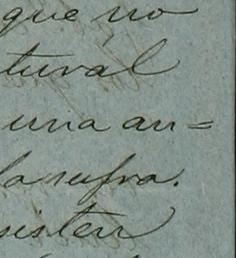 que no
tural
una an=
la sufra.
sisten